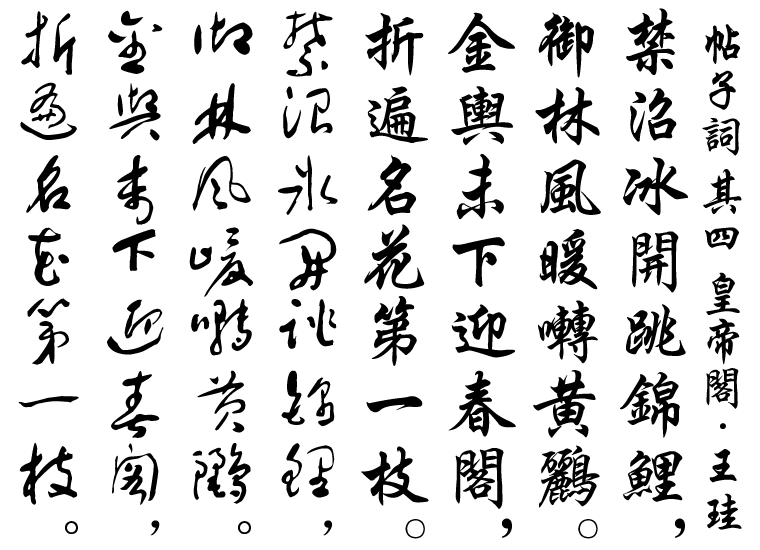 帖子詞 其四 皇帝閣·王珪
禁沼冰開跳錦鯉，
御林風暖囀黃鸝。
金輿未下迎春閣，
折遍名花第一枝。
禁沼冰開跳錦鯉，
御林風暖囀黃鸝。
金輿未下迎春閣，
折遍名花第一枝。